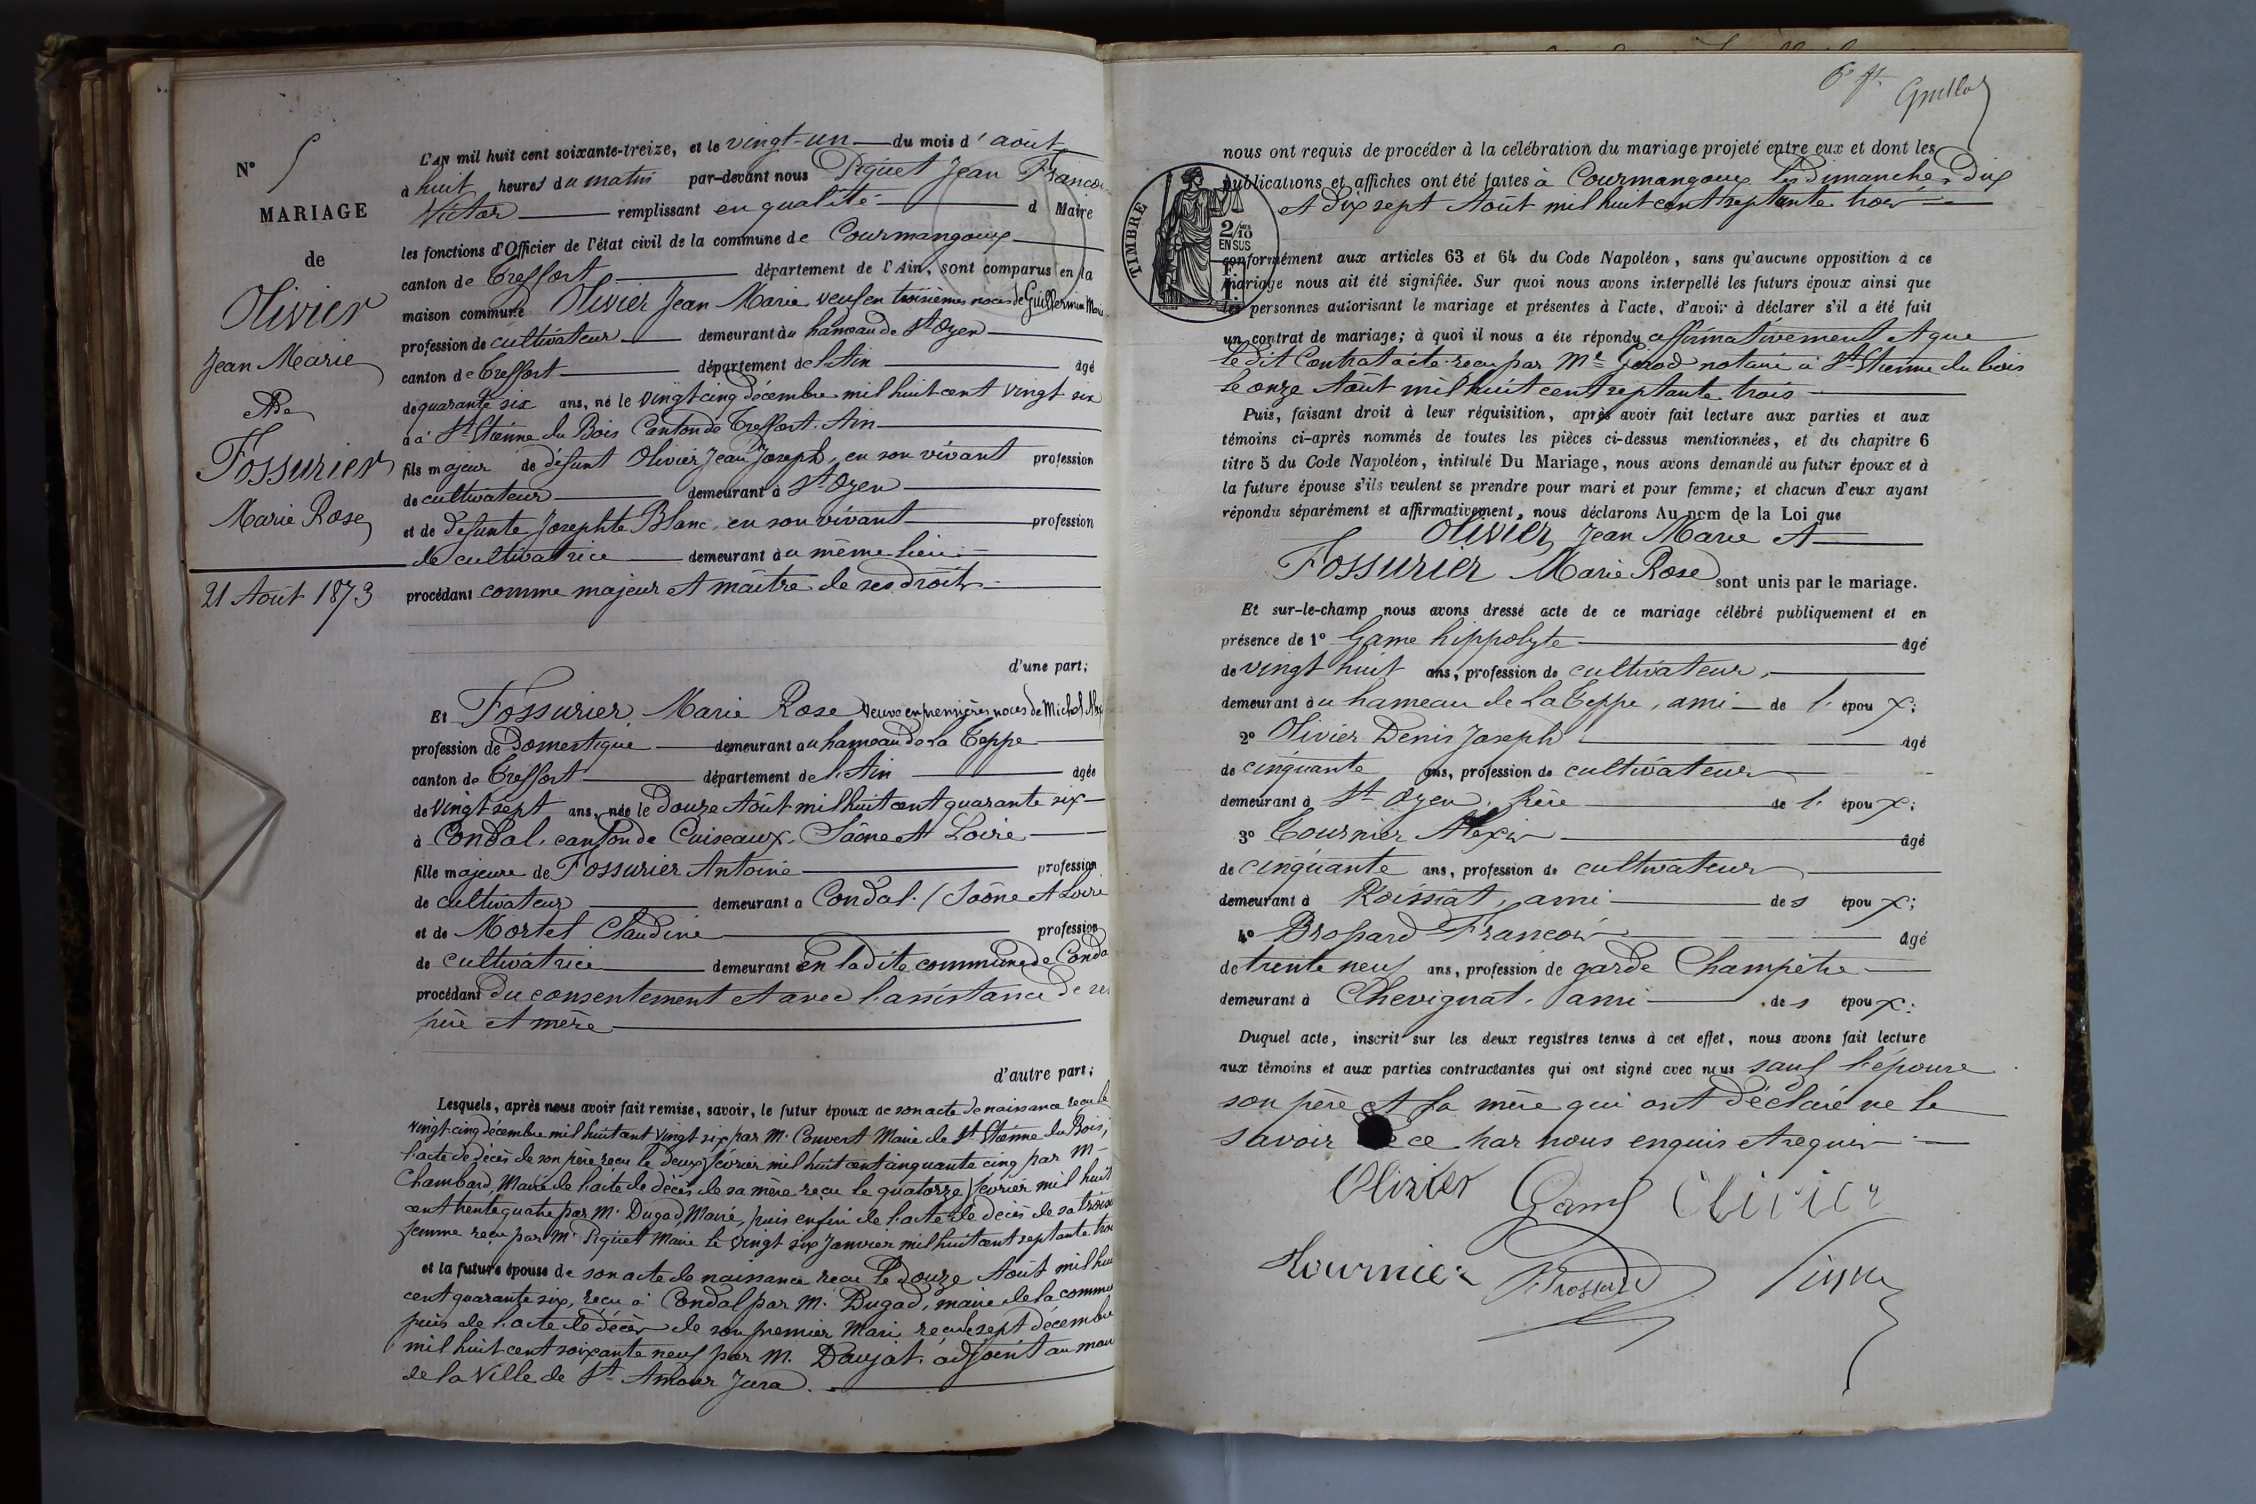 N° 5
MARIAGE
de
Olivier
Jean Marie
Et De
Fossurier
Marie Rose
21 Août 1873
L'AN mil huit cent soixante-treize, et le vingt-un du mois d'août
à huit heures du matin par-devant nous Piguet Jean François
Victor remplissant en qualité d Maire
les fonctions d'Officier de l'état civil de la commune de Courmangoux
canton de Treffort département de l'Ain, sont comparus en la
maison commune Olivier Jean Marie veuf en troisièmes noces de Guillermin Marie
profession de cultivateur demeurant au hameau de St Oyen
canton de Treffort département de l'Ain âgé
de quarante six ans, né le vingt cinq décembre mil huit cent vingt six
d à St Etienne du Bois Canton de Treffort. Ain
fils majeur de défunt Olivier Jean Joseph, en son vivant profession
de cultivateur demeurant à St Oyen
et de défunte Josephte Blanc, en son vivant profession
de cultivatrice demeurant au même lieu
procédant comme majeur et maître de ses droits
d'une part;
Et Fossurier, Marie Rose veuve en premières noces de Michel
profession de Domestique demeurant au hameau de La Teppe
canton de Treffort département de l'Ain âgée
de vingt sept ans, née le Douze Août mil huit cent quarante six
à Condal, canton de Cuiseaux, Saône et Loire
fille majeure de Fossurier Antoine profession
de cultivateur demeurant à Condal / Saône et Loire
et de Mortel Claudine profession
de cultivatrice demeurant en la dite commune de Condal
procédant du consentement et avec l'assistance de ses
père et mère
d'autre part;
Lesquels, après nous avoir fait remise, savoir, le futur époux de son acte de naissance reçu le
vingt-cinq décembre mil huit cent vingt six par M. Convert Maire de St Etienne du Bois,
l'acte de décès de son père reçu le deux février mil huit cent cinquante cinq par M
Chambard, Maire de l'acte de décès de sa mère reçu le quatorze février mil huit
cent trente quatre par M. Dugad, Maire, puis enfin de l'acte de décès de sa troisième
femme reçu par Mr Piguet Maire le vingt six Janvier mil huit cent septante trois
et la future épouse de son acte de naissance reçu le Douze Août mil huit
cent quarante six, reçu à Condal par M. Dugad, maire de la commune
puis de l'acte de décès de son premier Mari reçu le sept décembre
mil huit cent soixante neuf par M. Daujat, adjoint au maire
de la Ville de St Amour Jura.
nous ont requis de procéder à la célébration du mariage projeté entre eux et dont les
publications et affiches ont été faites à Courmangoux les Dimanches Dix
et Dix sept Août mil huit cent septante trois
TIMBRE
2/10
EN SUS
conformément aux articles 63 et 64 du Code Napoléon, sans qu'aucune opposition à ce
mariage nous ait été signifiée. Sur quoi nous avons interpellé les futurs époux ainsi que
les personnes autorisant le mariage et présentes à l'acte, d'avoir à déclarer s'il a été fait
un contrat de mariage; à quoi il nous a été répondu affirmativement et que
le dit Contrat a été reçu par Me Girod notaire à St Etienne du bois
le onze Août mil huit cent septante trois
Puis, faisant droit à leur réquisition, après avoir fait lecture aux parties et aux
témoins ci-après nommés de toutes les pièces ci-dessus mentionnées, et du chapitre 6
titre 5 du Code Napoléon, intitulé Du Mariage, nous avons demandé au futur époux et à
la future épouse s'ils veulent se prendre pour mari et pour femme; et chacun d'eux ayant
répondu séparément et affirmativement, nous déclarons Au nom de la Loi que
Olivier, Jean Marie et
Fossurier Marie Rose sont unis par le mariage.
Et sur-le-champ nous avons dressé acte de ce mariage célébré publiquement et en
présence de 1° Game hippolyte âgé
de vingt huit ans, profession de cultivateur,
demeurant au hameau de La Teppe, ami de l' époux;
2° Olivier Denis Joseph âgé
de cinquante ans, profession de cultivateur
demeurant à St Oyen, frère de l' époux;
3° Tournier Alexis âgé
de cinquante ans, profession de cultivateur
demeurant à Roissiat, ami des époux;
4° Brossard François âgé
de trente neuf ans, profession de garde Champêtre
demeurant à Chevignat, ami des époux;
Duquel acte, inscrit sur les deux registres tenus à cet effet, nous avons fait lecture
aux témoins et aux parties contractantes qui ont signé avec nous sauf l'épouse
son père et sa mère qui ont déclaré ne le
savoir de ce par nous enquis et requis
Olivier Game Olivier
Tournier Brossard